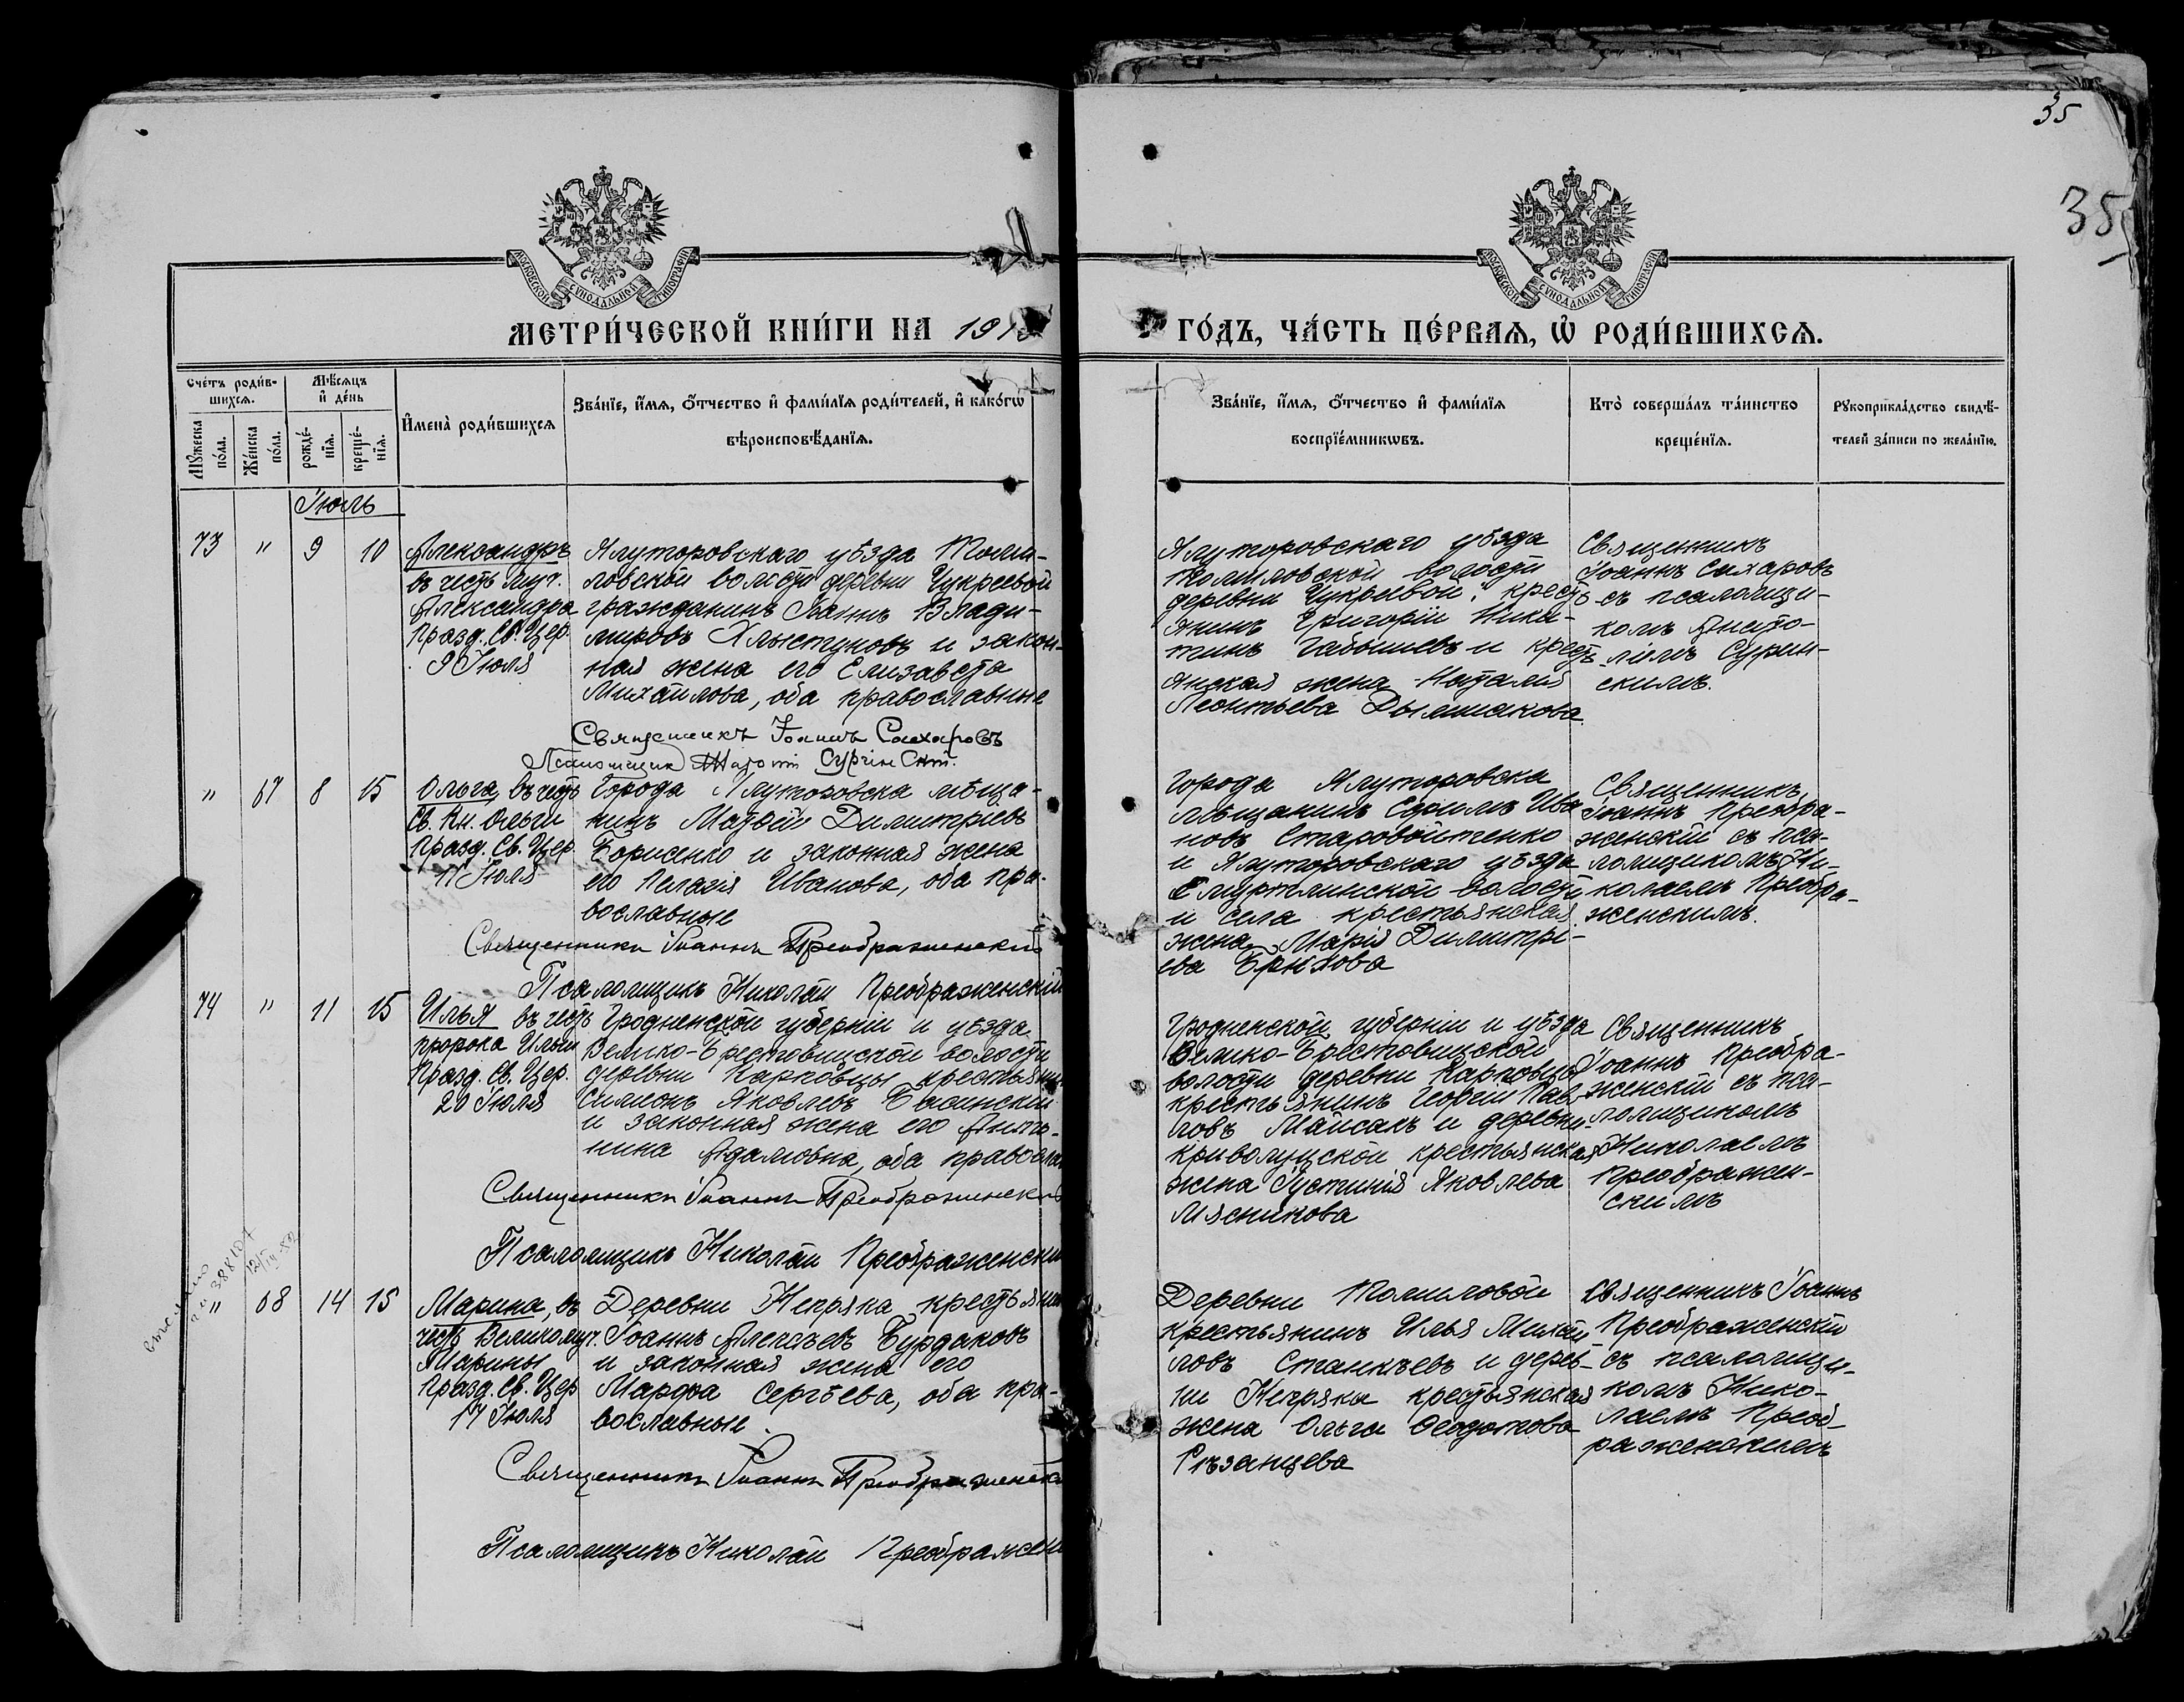 35
35
МОСКОВСКОЙ СѴНОДАЛЬНОЙ ТИПОГРАФІИ
МОСКОВСКОЙ СѴНОДАЛЬНОЙ ТИПОГРАФІИ
МЕТРИ́ЧЕСКОЙ КНИ́ГИ НА 191
ГО́ДЪ, ЧА́СТЬ ПЕ́РВАѦ, Ѡ҆ РОДИ́ВШИХСѦ.
Сче́тъ роди́в-
шихсѧ.
Мꙋ́жеска
по́ла.
Же́нска
по́ла.
Мѣ́сѧцъ
и҆ де́нь
рожде́-
нїѧ.
креще́-
нїѧ.
И҆мена̀ роди́вшихсѧ
Зва́нїе, и҆́мѧ, ѻ҆́тчество и҆ фами́лїѧ роди́телей, и҆ како́гѡ
вѣроисповѣ́данїѧ.
Зва́нїе, и҆́мѧ, ѻ҆́тчество и҆ фами́лїѧ
воспрїе́мникѡвъ.
Кто̀ соверша́лъ та́инство
креще́нїѧ.
Рꙋкоприкла́дство свидѣ́-
телей за́писи по жела́нїю.
Іюль
73 " 9 10
Александръ
въ честь муч.
Александра
Празд. Св. Цер.
9 Іюля
Ялуторовскаго уѣзда Томи-
ловской волости деревни Чукреевой
гражданинъ Іоаннъ Влади-
мировъ Хлыстуновъ и закон-
ная жена его Елизавета
Михайлова, оба православные
Священникъ Іоаннъ Сахаровъ
Псаломщик Суринскій.
Ялуторовскаго уѣзда
Томиловской волости
деревни Чукреевой, кресть-
янинъ Григорій Ники-
тинъ Габышевъ и кресть-
янская жена Наталія
Леонтьева Дымшакова
Священникъ
Іоаннъ Сахаровъ
съ псаломщи-
комъ Анато-
ліемъ Сурин-
скимъ.
" 67 8 15
Ольга, въ честь
Св. Кн. Ольги
Празд. Св. Цер.
11 Іюля
Города Ялуторовска мѣща-
нинъ Матѳей Димитріевъ
Борисенко и законная жена
его Пелагія Иванова, оба пра-
вославные
Священникъ Іоаннъ Преображенскій
Псаломщикъ Николай Преображенскій
Города Ялуторовска
мѣщанинъ Ефимъ Ива
новъ Старовойтенко
и Ялуторовскаго уѣзда
Емуртлинской волости
и села крестьянская
жена Марія Димитрі-
ева Брюхова
Священникъ
Іоаннъ Преобра-
женскій съ пса-
ломщикомъ Ни-
колаемъ Преобра-
женскимъ.
74 " 11 15
Илья въ честь
пророка Иліи
Празд. Св. Цер.
20 Іюля
Гродненской губерніи и уѣзда
Велико-Брестовицкой волости
деревни Карповцы крестьянин
Симеонъ Яковлевъ Басинскій
и законная жена его Анто-
нина Адамовна, оба правосла
Священникъ Іоаннъ Преображенскій
Псаломщикъ Николай Преображенскій
Гродненской губерніи и уѣзда
Велико-Брестовицкой
волости деревни Карповцы
крестьянинъ Георгій Пав-
ловъ Майсакъ и деревни
Криволуцкой крестьянская
жена Іустинія Яковлева
Мясникова
Священникъ
Іоаннъ Преобра-
женскій съ пса-
ломщикомъ
Николаемъ
Преображен-
скимъ
" 68 14 15
Марина, въ
честь Великомуч.
Марины
Празд. Св. Цер
17 Іюля
Деревни Непряка крестьянин
Іоаннъ Алексѣевъ Бурдаковъ
и законная жена его
Марфа Сергѣева, оба пра-
вославные.
Священникъ Іоаннъ Преображенск
Псаломщикъ Николай Преображен
Деревни Томиловой
крестьянинъ Илья Михай
ловъ Станкѣевъ и дерев-
ни Непряка крестьянская
жена Ольга Ѳеодотова
Рѣзанцева
Священникъ Іоаннъ
Преображенскій
съ псаломщи-
комъ Нико-
лаемъ Преоб-
раженскимъ